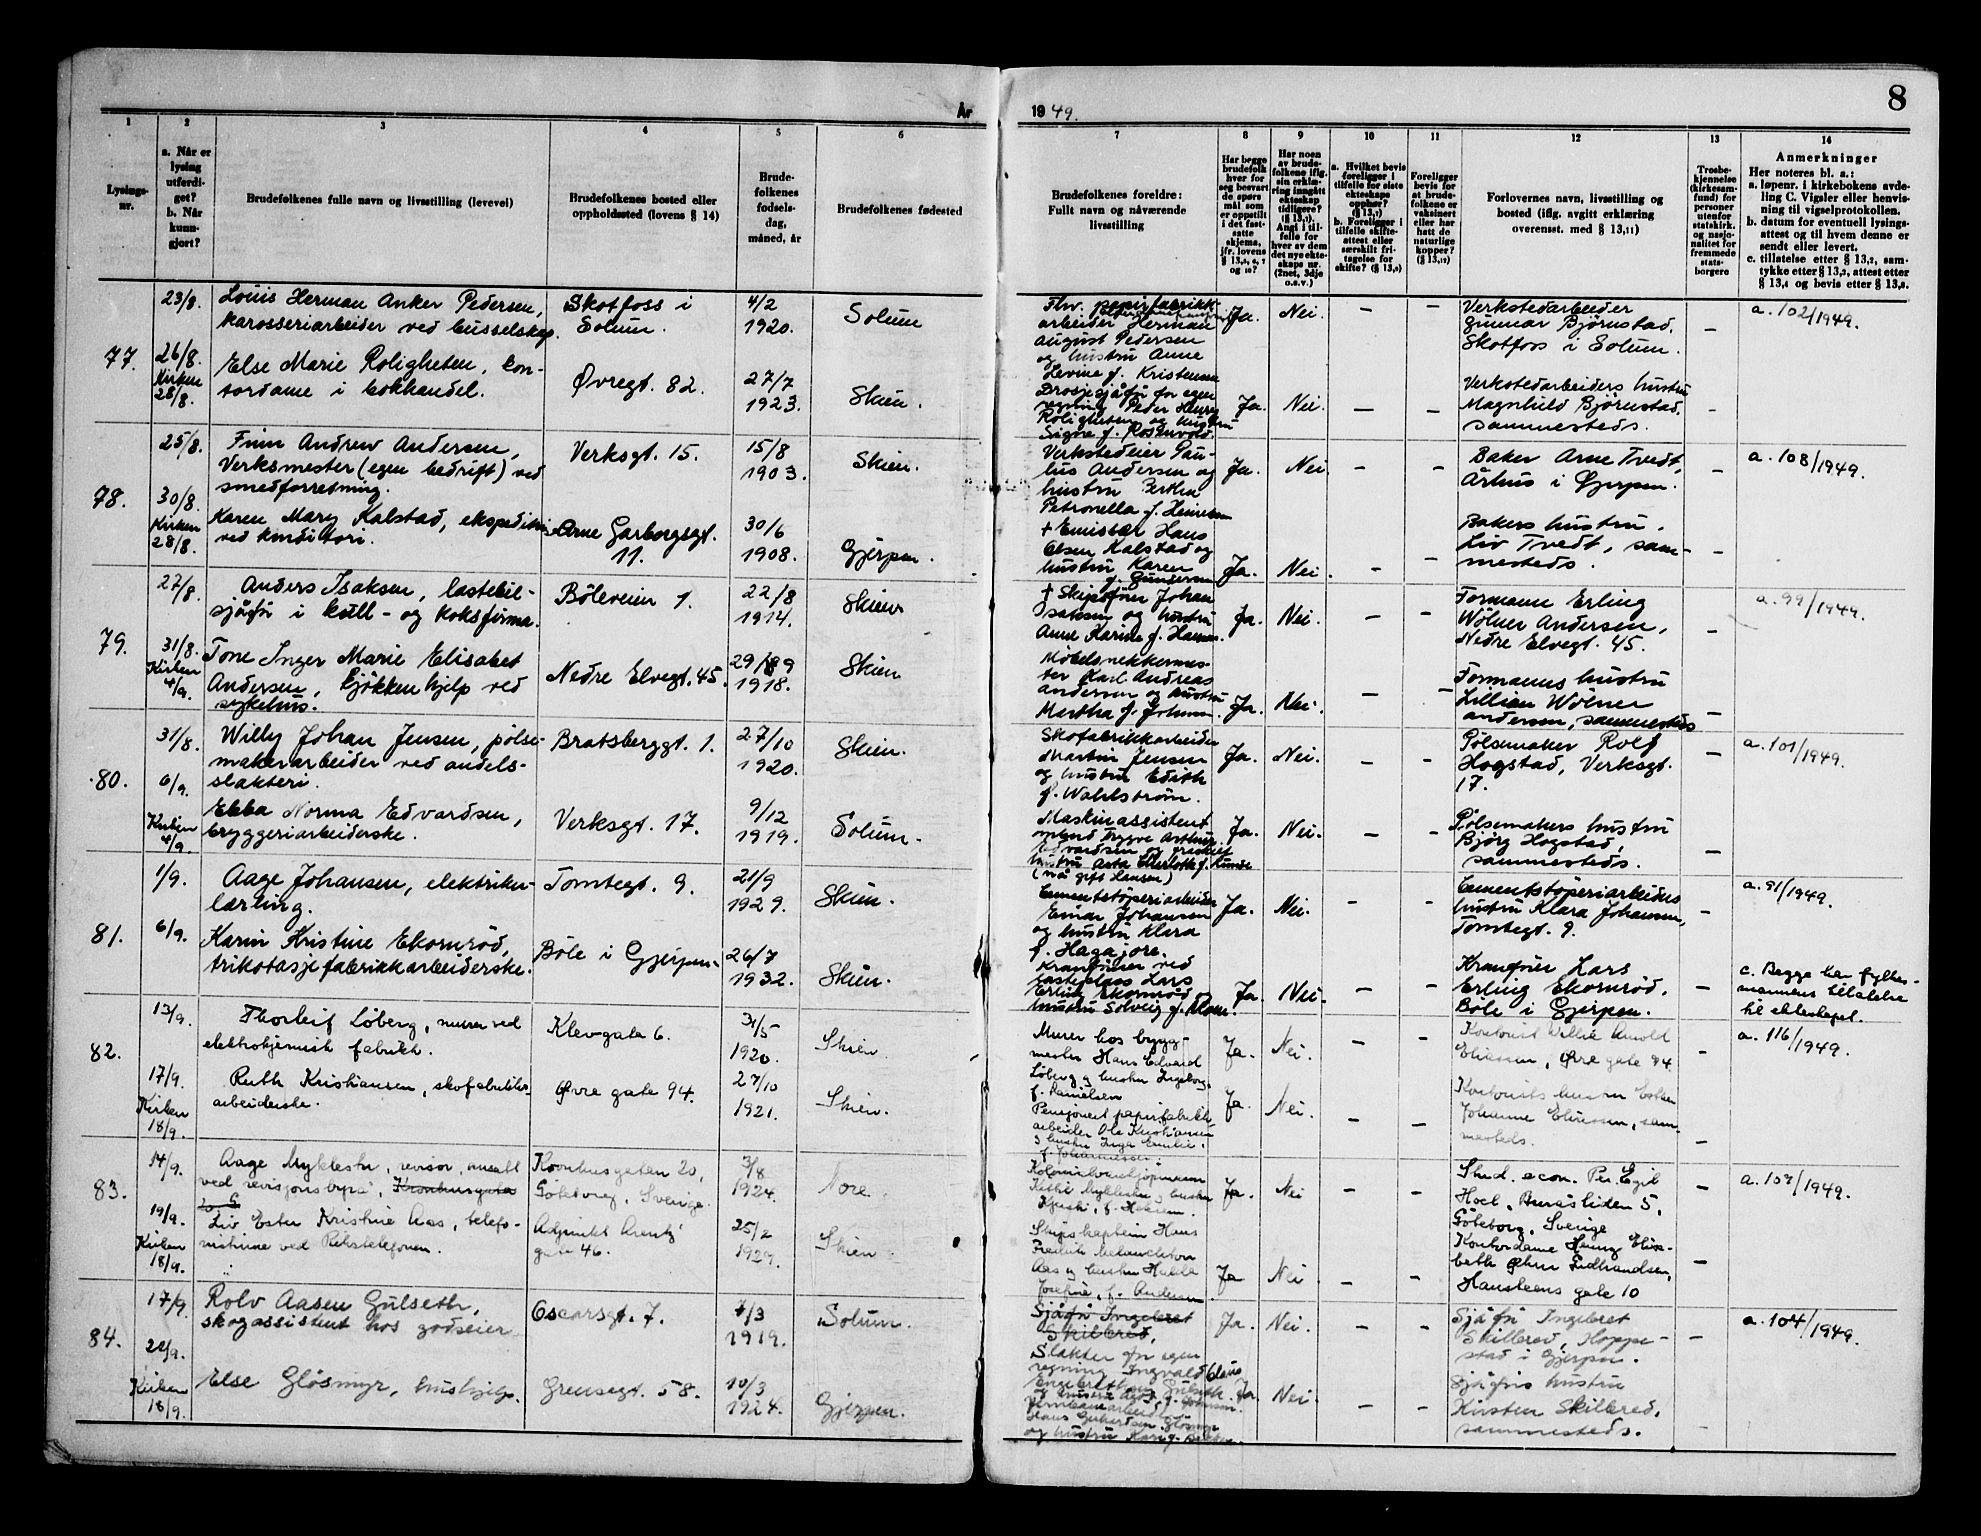 År
1949.
8
1
2
3
4
5
6
7
8
9
10
11
12
13
14
Lysings-
nr.
a. Når er
lysing
utferdi-
get?
b. Når
kunn-
gjort?
Brudefolkenes fulle navn og livsstilling (levevei)
Brudefolkenes bosted eller
oppholdssted (lovens § 14)
Brude-
folkenes
fødsels-
dag,
måned, år
Brudefolkenes fødested
Brudefolkenes foreldre:
Fullt navn og nåværende
livsstilling
Har begge
brudefolk
hver for
seg besvart
de spørs-
mål som
er oppstilt
i det fast-
satte
skjema,
jfr. lovens
og 10?
Har noen
av brude-
folkene iflg.
sin erklæ-
ring inngått
ekteskap
tidligere?
Angi i til-
felle for
hver av dem
det nye ekte-
skaps nr.
(2net, 3dje
o.s.v.)
a. Hvilket bevis
foreligger i
tilfelle for siste
ekteskaps
opphør?
b. Foreligger i
tilfelle skifte-
attest eller
særskilt fri-
tagelse for
skifte?
Foreligger
bevis for
at brude-
folkene er
vaksinert
eller har
hatt de
naturlige
kopper?
Forlovernes navn, livsstilling og
bosted (iflg. avgitt erklæring
overensst. med § 13,11)
Trosbe-
kjennelse
(kirkesam-
fund) for
personer
utenfor
statskirk.
og nasjo-
nalitet for
fremmede
stats-
borgere
Anmerkninger
Her noteres bl. a.:
a. løpenr. i kirkebokens avde-
ling C. Vigsler eller henvis-
ning til vigselprotokollen.
b. datum for eventuell lysings-
attest og til hvem denne er
sendt eller levert.
c. tillatelse etter § 13,2, sam-
tykke etter § 13,3, attest etter
§ 13,4 og bevis etter § 13,8.
77.
23/8.
26/8.
Kirken
28/8.
Louis Herman Anker Pedersen,
karosseriarbeider ved busselskap.
Skotfoss i
Solum.
4/2
1920.
Solum
Flw. papirfabrikk-
arbeider Herman
August Pedersen
og hustru Anne
Levine f. Kristensen
Ja.
Nei.
–
–
Verkstedarbeider
Gunnar Bjørnstad,
Skotfoss i Solum.
–
a. 102/1949.
Else Marie Roligheten, kon-
tordame i bokhandel.
Øvregt. 82.
27/7
1923.
Skien.
Drosjesjåfør for egen
regning Peder Henry
Roligheten og hustru
Signe f. Rosenvold.
Ja.
Nei.
–
–
Verkstedarbeiders hustru
Magnhild Bjørnstad,
sammesteds.
–
78.
25/8.
30/8.
Kirken
28/8.
Finn Andrew Andersen,
Verksmester (egen bedrift) ved
smedforretning.
Verksgt. 15.
15/8
1903.
Skien.
Verkstedeier Pau-
lus Andersen og
hustru Berthe
Petronella f. Henriksen
Ja.
Nei.
–
–
Baker Arne Tvedt,
Århus i Gjerpen.
–
a. 108/1949.
Karen Mary Kalstad, ekspeditrise
ved konditori.
Arne Garborgsgt.
11.
30/6
1908.
Gjerpen.
+ Hans
Olsen Kalstad og
hustru Karen
f. Gundersen
Ja.
Nei.
–
–
Bakers hustru
Liv Tvedt, sam-
mesteds.
–
79.
27/8.
31/8.
Kirken
4/9.
Anders Isaksen, lastebil-
sjåfør i kull- og koksfirma.
Bøleveien 1.
22/8
1914.
Skien
+ Skipsfører Johan
Isaksen og hustru
Anne Karine f. Hansen.
Ja.
Nei.
–
–
Formann Erling
Wölner Andersen,
Nedre Elvegt. 45.
–
a. 99/1949.
Tone Inger Marie Elisabet
Andersen, kjøkkenhjelp ved
sykehus.
Nedre Elvegt. 45.
29/9
1918.
Skien
Møbelsnekkermes-
ter Karl Andreas
Andersen og hustru
Martha f. Johnsen.
Ja.
Nei.
–
–
Formanns hustru
Lillian Wölner
Andersen, sammesteds
–
80.
31/8.
6/9.
Kirken
4/9.
Willy Johan Jensen, pølse-
makerarbeider ved andels-
slakteri.
Bratsberggt. 1.
27/10
1920.
Skien.
Skofabrikkarbeider
Martin Jensen
og hustru Edith
f. Wahlstrøm.
Ja.
Nei.
–
–
Pølsemaker Rolf
Hogstad, Verksgt.
17.
–
a. 101/1949.
Ebba Norma Edvardsen,
bryggeriarbeiderske.
Verksgt. 17.
9/12
1919.
Solum.
Maskinassistent
Trygve Arthur
Edvardsen og fraskilt
hustru Asta Charlotte f. Lunde
(nå gift Hansen)
Ja.
Nei.
–
–
Pølsemakers hustru
Bjørg Hogstad,
sammesteds.
–
81.
1/9.
6/9.
Aage Johansen, elektriker-
lærling.
Tomtegt. 9.
21/9
1929.
Skien.
Cementstøperiarbeider
Einar Johansen
og hustru Klara
f. Hagajore.
Ja.
Nei.
–
–
Cementstøperiarbeiders
hustru Klara Johansen,
Tomtegt. 9.
–
a. 91/1949.
Karin Kristine Ekornrød,
trikotasjefabrikkarbeiderske.
Bøle i Gjerpen
26/7
1932.
Skien.
Kranfører ved
lasteplass Lars
Erling Ekornrød og
hustru Solveig f. Moen.
Ja.
Nei.
–
–
Kranfører Lars
Erling Ekornrød,
Bøle i Gjerpen.
–
c. Begge har fylkes-
mannens tillatelse
til ekteskapet.
82.
13/9.
17/9.
Kirken
18/9.
Thorleif Løberg, murer ved
elektrokjemisk fabrikk.
Klevgata 6.
31/5
1920.
Skien.
Murer hos bygg-
mester Hans Edvard
Løberg og hustru Ingeborg
f. Danielsen
Ja.
Nei.
–
–
Kontorist Willie Arnold
Eliassen, Øvre gate 94
–
a. 116/1949.
Ruth Kristiansen, skofabrikk-
arbeiderske.
Øvre gate 94.
27/10
1921.
Skien.
Pensjonert papirfabrikk-
arbeider Ole Kristiansen
og hustru Inga Emilie
f. Johannessen.
Ja.
Nei.
–
–
Kontorists hustru Esther
Johanne Eliassen, sam-
mesteds.
–
83.
14/9.
19/9.
Kirken
18/9.
Aage Myklestu, revisor, ansatt
ved revisjonsbyrå, Kronhusgata
20 G
Kronhusgatan 20,
Göteborg, Sverige.
3/8
1924.
Nore.
Kolonialhandler
Myklestu og hustru
Ja.
Nei
Stud. econ. Per Egil
Hoel, 5,
Göteborg, Sverige
–
a. 107/1949.
Liv Ester Kristine Aas, telefo-
nistinne ved Rikstelefonen.
Adjunkt Arentz
gate 46.
25/2
1927.
Skien
Skipskaptein Hans
Fredrik Melanchton
Aas og hustru Hulda
Josefine, f. Andersen.
Ja
Nei.
–
–
Kontordame Henny Elisa-
beth Øhre Ferdinandsen,
Hansteens gate 10
84.
17/9
20/9.
Kirken
18/9.
Rolv Aasen Gulseth,
skogassistent hos godseier
Oscarsgt. 7.
7/3
1919.
Solum.
Sjåfør Ingebret
Skilbred,
Slakter for egen
regning Ingvald Claus
Engebretsen Gulseth
Ja.
Nei.
–
–
Sjåfør Ingebret
Skilbred, Hoppe-
stad i Gjerpen.
–
a. 104/1949.
Else Gløsmyr, hushjelp.
Grensegt. 58.
10/3
1924.
Gjerpen.
Hans Gerhardsen Gløsmyr
og hustru
Ja.
Nei.
–
–
Sjåførs hustru
Kirsten Skilbred,
sammesteds.
–